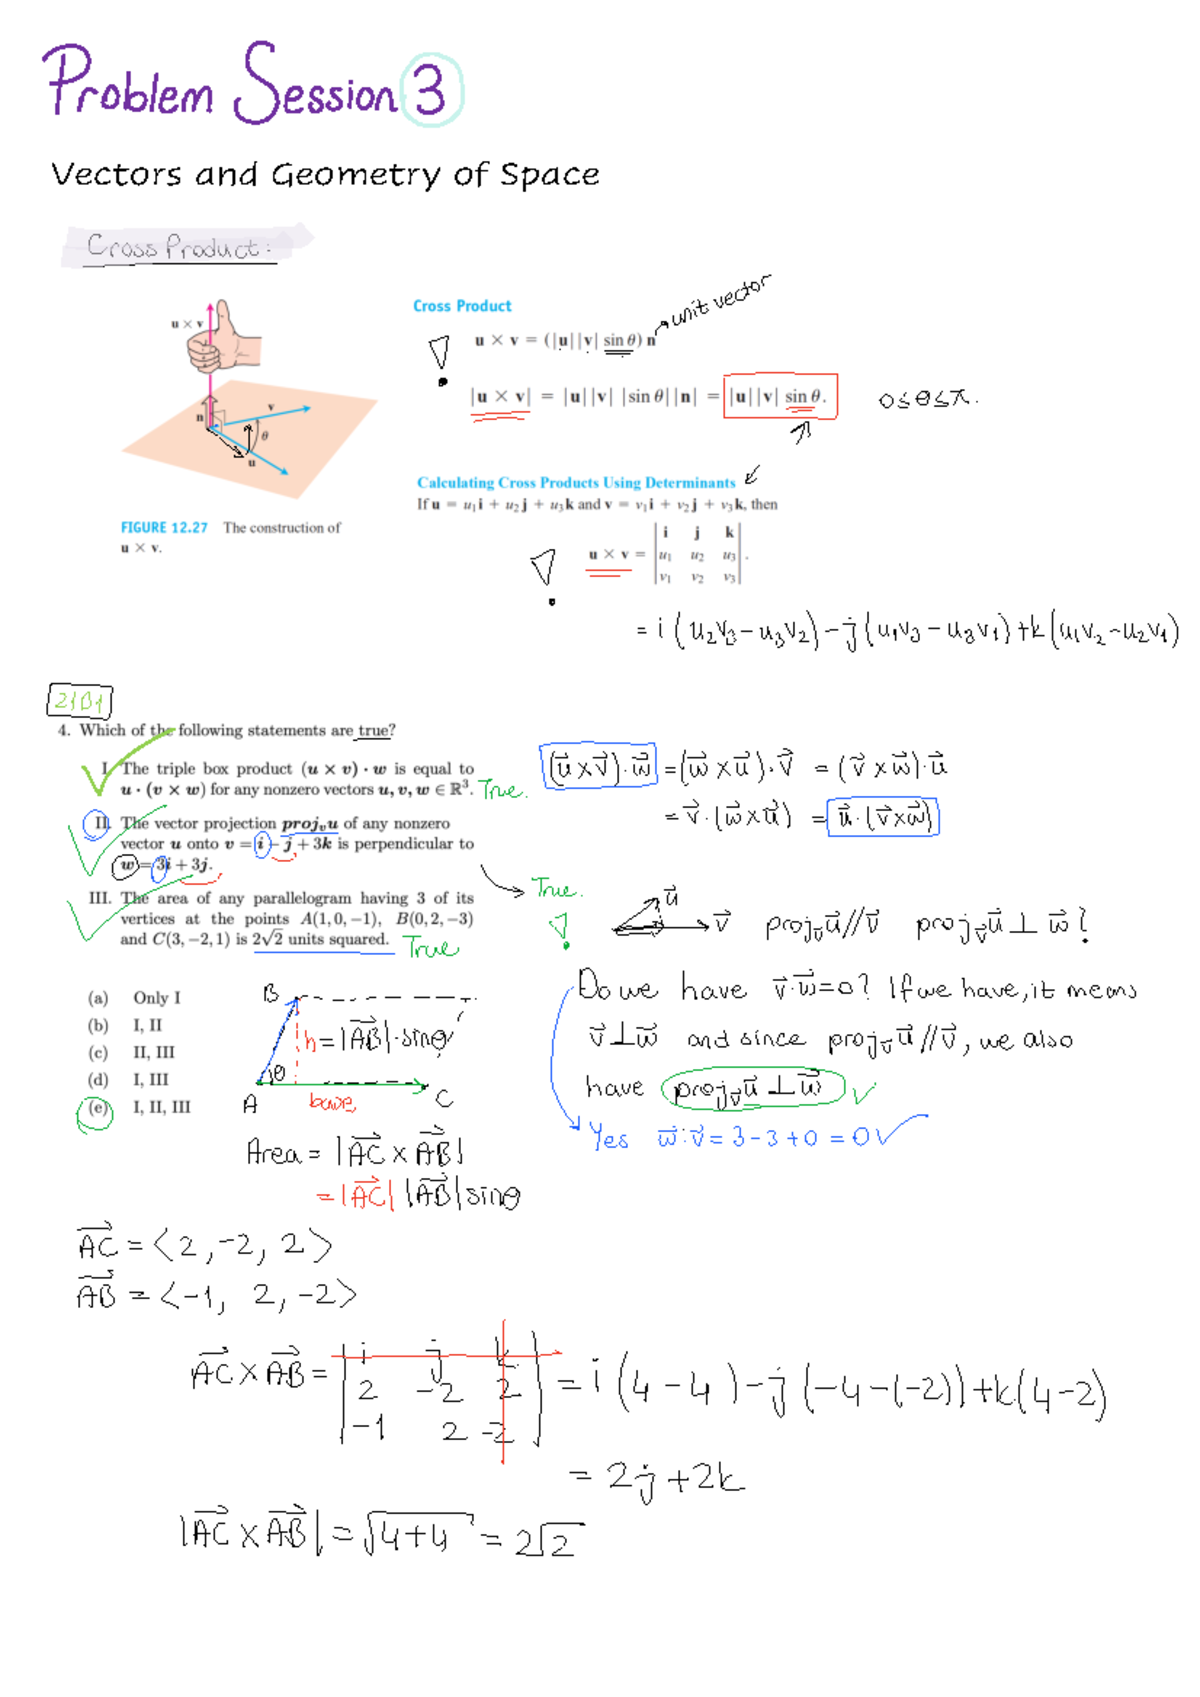 Problem Session 3
Vectors and Geometry of Space
Cross Product:
u × v
n
v
θ
u
FIGURE 12.27 The construction of
u × v.
Cross Product
u × v = (|u||v| sin θ) n
unit vector
|u × v| = |u||v| |sin θ||n| = |u||v| sin θ.
0 ≤ θ ≤ π.
Calculating Cross Products Using Determinants
If u = u₁i + u₂j + u₃k and v = v₁i + v₂j + v₃k, then
i j k
u × v = u₁ u₂ u₃ .
v₁ v₂ v₃
= i (u₂v₃ - u₃v₂) - j (u₁v₃ - u₃v₁) + k (u₁v₂ - u₂v₁)
21B1
4. Which of the following statements are true?
I. The triple box product (u × v) · w is equal to
u · (v × w) for any nonzero vectors u, v, w ∈ ℝ³. True.
II. The vector projection projᵥu of any nonzero
vector u onto v = i − j + 3k is perpendicular to
w = 3i + 3j.
True.
III. The area of any parallelogram having 3 of its
vertices at the points A(1, 0, −1), B(0, 2, −3)
and C(3, −2, 1) is 2√2 units squared. True
(a) Only I
(b) I, II
(c) II, III
(d) I, III
(e) I, II, III
(u⃗ × v⃗) · w⃗ = (w⃗ × u⃗) · v⃗ = (v⃗ × w⃗) · u⃗
= v⃗ · (w⃗ × u⃗) = u⃗ · (v⃗ × w⃗)
u⃗
v⃗
projᵥu⃗ // v⃗ projᵥu⃗ ⊥ w⃗ ?
Do we have v⃗ · w⃗ = 0? If we have, it means
v⃗ ⊥ w⃗ and since projᵥu⃗ // v⃗, we also
have projᵥu⃗ ⊥ w⃗
Yes w⃗ · v⃗ = 3 - 3 + 0 = 0
B
h = |AB| · sinθ
θ
A
base
C
Area = |AC × AB|
= |AC| |AB| sinθ
AC = <2, -2, 2>
AB = <-1, 2, -2>
i j k
AC × AB = 2 -2 2 = i (4 - 4) - j (-4 - (-2)) + k (4 - 2)
-1 2 -2
= 2j + 2k
|AC × AB| = √4+4 = 2√2